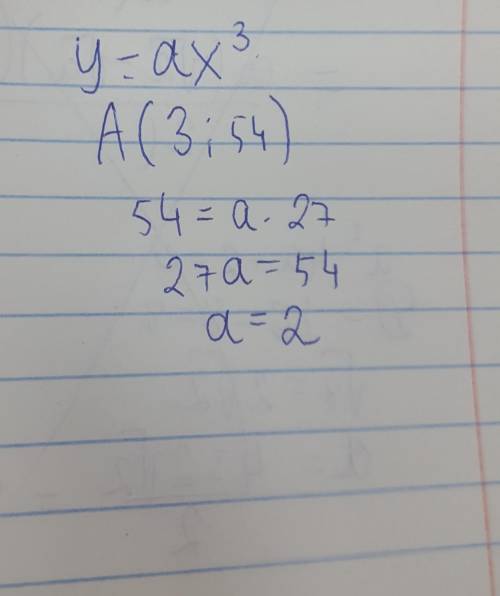 y = ax³
A(3; 54)
54 = a · 27
27a = 54
a = 2